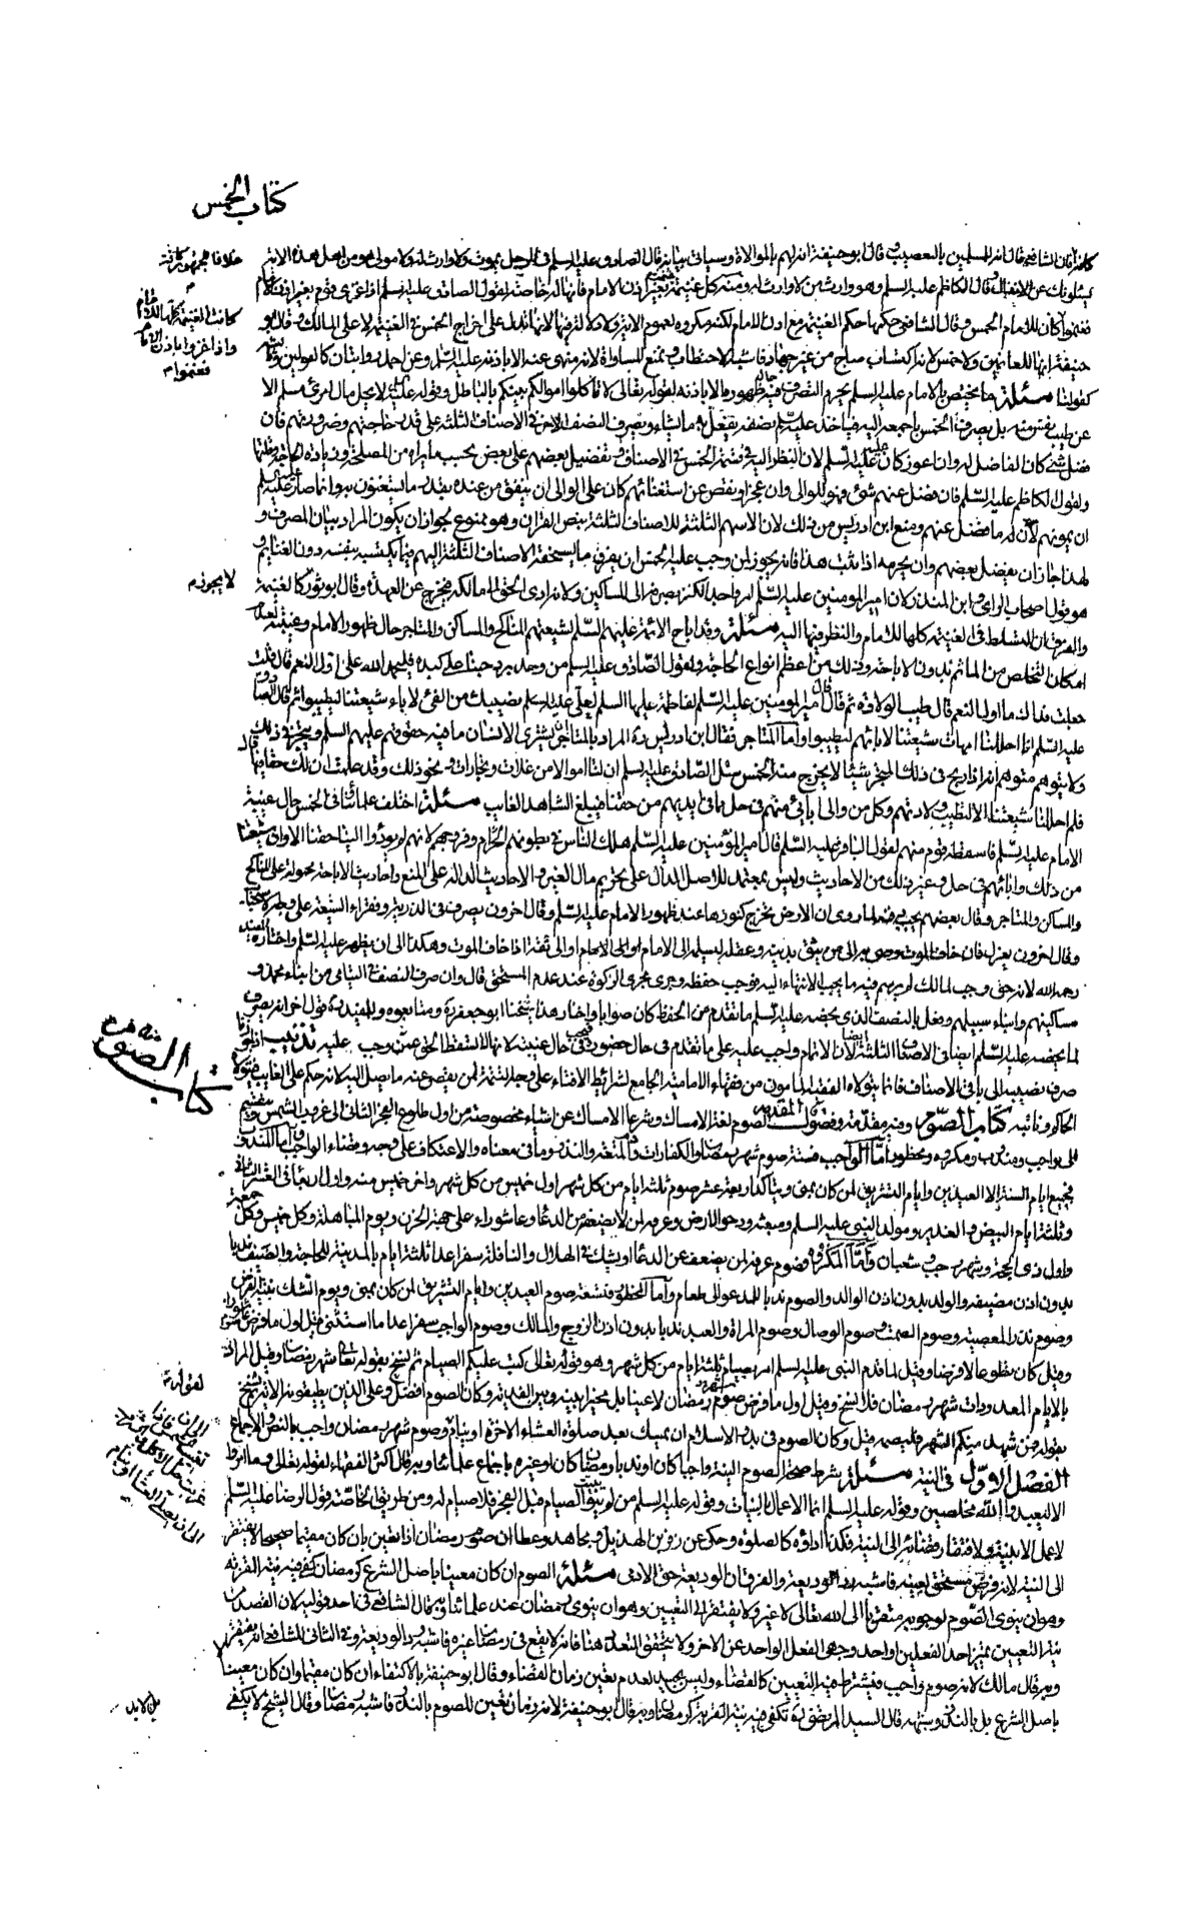 كتاب الخمس
كافرا فان الشافعي قال انه للمسلمين بالتعصيب وقال ابو حنيفة انه لهم بالموالاة وسياتي بيانه قال الصادق عليه السلم في الرجل يموت ولا وارث له ولا مولى هو من اهل هذه الاية
يسئلونك عن الانفال وقال الكاظم عليه السلم وهو وارث من لا وارث له ومنه كل غنيمة بغير اذن الامام فانها له خاصة لقول الصادق عليه السلم اذا غزى قوم بغير اذن الامام
فغنموا كان للامام الخمس وقال الشافعي حكمها حكم الغنيمة مع اذن الامام لكنه مكروه لعموم الاية ولا دلالة فيها لانها تدل على اخراج الخمس في الغنيمة لا على المالك وقال ابو
حنيفة انها للغانمين ولا خمس لانه اكتساب مباح من غير جهاد فاشبه الاحتطاب
كقولنا مسئلة ما يختص بالامام عليه السلم يحرم التصرف فيه حال ظهوره الا باذنه لقوله تعالى لا تاكلوا اموالكم بينكم بالباطل وقوله عليه السلم لا يحل مال امرئ مسلم الا
عن طيب نفس منه بل يصرف الخمس باجمعه اليه فياخذ عليه السلم نصفه يفعل به ما يشاء ويصرف النصف الاخر في الاصناف الثلثة على قدر حاجتهم وضرورتهم فان
فضل شئ كان الفاضل له وان اعوز كان عليه عليه السلم لان النظر اليه في قسمة الخمس في الاصناف وتفضيل بعضهم على بعض بحسب ما يراه من المصلحة وزيادة الحاجة وقلتها
ولقول الكاظم عليه السلم فان فضل عنهم شئ فهو للوالي وان عجز او نقص عن استغنائهم كان على الوالي ان ينفق من عنده بقدر ما يستغنون به وانما صار عليه
ان يمونهم لان له ما فضل عنهم ومنع ابن ادريس من ذلك لان الاسهم الثلثة للاصناف الثلثة بنص القران وهو ممنوع لجواز ان يكون المراد بيان المصرف و
لهذا جاز ان يفضل بعضهم وان يحرمه اذا ثبت هذا فانه يجوز لمن وجب عليه الخمس ان يفرق ما يستحقه الاصناف الثلثة اليهم فيما يكتسبه بنفسه دون الغنايم و
هو قول اصحاب الراي وابن المنذر لان امير المومنين عليه السلم امر واجد الكنز بصرفه الى المساكين ولانه ادى الحق الى مالكه فيخرج عن العهدة وقال ابو ثور لا يجوز كالغنيمة
والفرق ان التسلط في الغنيمة كلها للامام والنظر فيها اليه مسئلة وقد اباح الائمة عليهم السلم لشيعتهم المناكح والمساكن والمتاجر حال ظهور الامام وغيبته لعدم
امكان التخلص من الماثم بدون الاباحة وذلك من اعظم انواع الحاجة ولقول الصادق عليه السلم من وجد برد حبنا على كبده فليحمد الله على اول النعم قال قلت
جعلت فداك ما اول النعم قال طيب الولادة ثم قال قال امير المومنين عليه السلم لفاطمة عليها السلم احلي نصيبك من الفئ لاباء شيعتنا ليطيبوا ثم قال الصادق
عليه السلم انا احللنا امهات شيعتنا لابائهم ليطيبوا واما المتاجر فقال ابن ادريس ره المراد بالمتاجر ان يشتري الانسان ما فيه حقوقهم عليهم السلم ويتجر في ذلك
ولا يتوهم متوهم انه اذا ربح في ذلك المتجر شيئا لا يخرج منه الخمس سئل الصادق عليه السلم ان لنا اموالا من غلات وتجارات ونحو ذلك وقد علمت ان لك حقا فيها قال
فلم احللنا شيعتنا الا لتطيب ولادتهم وكل من والى ابائي منهم في حل مما في ايديهم من حقنا فليبلغ الشاهد الغايب مسئلة اختلف علمائنا في الخمس حال غيبة
الامام عليه السلم فاسقطه قوم منهم لقول الباقر عليه السلم قال امير المؤمنين عليه السلم هلك الناس في بطونهم وفروجهم لانهم لم يودوا الينا حقنا الا وان شيعتنا
من ذلك وابائهم في حل وغير ذلك من الاحاديث وليس بمعتمد للاصل الدال على تحريم مال الغير والاحاديث الدالة على المنع واحاديث الاباحة محمولة على المناكح
والمساكن والمتاجر وقال بعضهم يجب دفنه لما روى ان الارض تخرج كنوزها عند ظهور الامام عليه السلم وقال اخرون يصرف في الذرية وفقراء الشيعة على وجه الاستحباب
وقال اخرون يعزل فان خاف الموت وصى به الى من يثق بدينه وعقله ليسلمه الى الامام او الى ثقة اذا خاف الموت وهكذا الى ان يظهر عليه السلم واختاره المفيد
رحمه الله لانه حق وجب لمالك لم يرسم فيه ما يجب الانتهاء اليه فوجب حفظه وجرى مجرى الزكوة عند عدم المستحق قال وان صرف النصف في اليتامى من ابناء محمد و
مساكينهم وابناء سبيلهم وفعل بالنصف الذي يخصه عليه السلم ما تقدم من الحفظ كان صوابا واختار هذا شيخنا ابو جعفر ره ومتابعوه وللمفيد ره قول اخر انه يصرف
ما يخصه عليه السلم ايضا في الاصناف الثلثة لان الاتمام واجب عليه على ما تقدم في حال حضوره فيجب في حال غيبته لانها لا تسقط الحق عمن وجب عليه تذنيب اذا قلنا
صرف نصيبه الى باقي الاصناف فانما يتولاه الفقيه المامون من فقهاء الامامية الجامع لشرائط الافتاء على وجه التتمة لمن يقصر عنه ما يصل اليه لانه حكم على الغايب فيتولاه
الحاكم او نائبه كتاب الصوم وفيه مقدمة وفصول المقدمة الصوم لغة الامساك وشرعا الامساك عن اشياء مخصوصة من اول طلوع الفجر الثاني الى غروب الشمس وينقسم
الى واجب ومندوب ومكروه ومحظور اما الواجب فستة صوم شهر رمضان والكفارات ودم المتعة والنذر وما في معناه والاعتكاف على وجه وقضاء الواجب واما المندوب
فجميع ايام السنة الا العيدين وايام التشريق لمن كان بمنى ويتاكد اربعة عشر صوم ثلثة ايام من كل شهر اول خميس من كل شهر واخر خميس منه واول اربعاء في العشر الثاني
وثلثة ايام البيض والغدير ومولد النبي عليه السلم ومبعثه ودحو الارض وعرفة لمن لا يضعفه عن الدعاء وعاشوراء على جهة الحزن ويوم المباهلة وكل خميس وكل جمعة
واول ذي الحجة وشهر رجب وشعبان واما المكروه فصوم عرفة لمن يضعف عن الدعاء او يشك في الهلال والنافلة سفرا عدا ثلثة ايام بالمدينة للحاجة والضيف ندبا
بدون اذن مضيفه والولد بدون اذن الوالد والصوم ندبا للمدعو الى طعام واما المحظور فتسعة صوم العيدين وايام التشريق لمن كان بمنى ويوم الشك بنية الفرض
وصوم نذر المعصية وصوم الصمت وصوم الوصال وصوم المراة والعبد ندبا بدون اذن الزوج والمالك وصوم الواجب سفرا عدا ما استثنى قيل اول ما فرض صوم عاشوراء
وقيل كان تطوعا لا فرضا وقيل لما قدم النبي عليه السلم امر بصيام ثلثة ايام من كل شهر وهو قوله تعالى كتب عليكم الصيام ثم نسخ بقوله تعالى شهر رمضان وقيل المراد
بالايام المعدودات شهر رمضان فلا نسخ وقيل اول ما فرض صوم شهر رمضان لا عينا بل مخير ابينه وبين الفدية وكان الصوم افضل وعلى الذين يطيقونه الاية نسخ
بقوله فمن شهد منكم الشهر فليصمه قيل وكان الصوم في بدء الاسلام ان يمسك بعد صلوة العشاء الاخرة او ينام وصوم شهر رمضان واجب بالنص والاجماع
الفصل الاول في النية مسئلة يشرط صحة الصوم النية واجبا كان او ندبا رمضان كان او غيره باجماع علمائنا وبه قال اكثر الفقهاء لقوله تعالى وما امروا
الا ليعبدوا الله مخلصين وقوله عليه السلم انما الاعمال بالنيات وقوله عليه السلم من لم يبيت الصيام قبل الفجر فلا صيام له ومن طريق الخاصة قول الرضا عليه السلم
لا عمل الا بنية ولافتقار قضائه الى النية فكذا اداؤه كالصلوة وحكى عن زفر بن الهذيل ومجاهد وعطا ان صوم رمضان اذا تعين بان كان مقيما صحيحا لا يفتقر
الى النية لانه فرض مستحق لعينه فاشبه رد الوديعة والفرق ان الوديعة حق الادمي مسئلة الصوم ان كان معينا باصل الشرع كرمضان كفى فيه نية القربة
وهو ان ينوي الصوم لوجوبه متقربا الى الله تعالى لا غير ولا يفتقر الى التعيين وهو ان ينوي رمضان عند علمائنا وبه قال الشافعي في احد قوليه لان القصد من
نية التعيين تميز احد الفعلين او احد وجهى الفعل الواحد عن الاخر ولا يتحقق التعدد هنا فانه لا يقع في رمضان غيره فاشبه رد الوديعة وفي الثاني للشافعي انه يفتقر
وبه قال مالك لانه صوم واجب فيشترط فيه التعيين كالقضاء وليس بجيد لعدم تعين زمان القضاء وقال ابو حنيفة بالاكتفاء ان كان مقيما وان كان معينا لا
باصل الشرع بل بالنذر وشبهه قال السيد المرتضى ره تكفي فيه نية القربة كرمضان وبه قال ابو حنيفة لانه زمان تعين للصوم بالنذر فاشبه رمضان وقال الشيخ لا يكفي
خلافا للجمهور كافة
كانت الغنيمة كلها للامام
واذا غزوا باذن الامام
فغنموا م
لا يجوز م
كتاب الصوم
بل لا بد